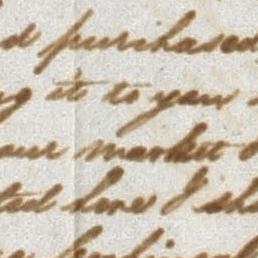 d purchased
g it to your
our market
ted here I sh